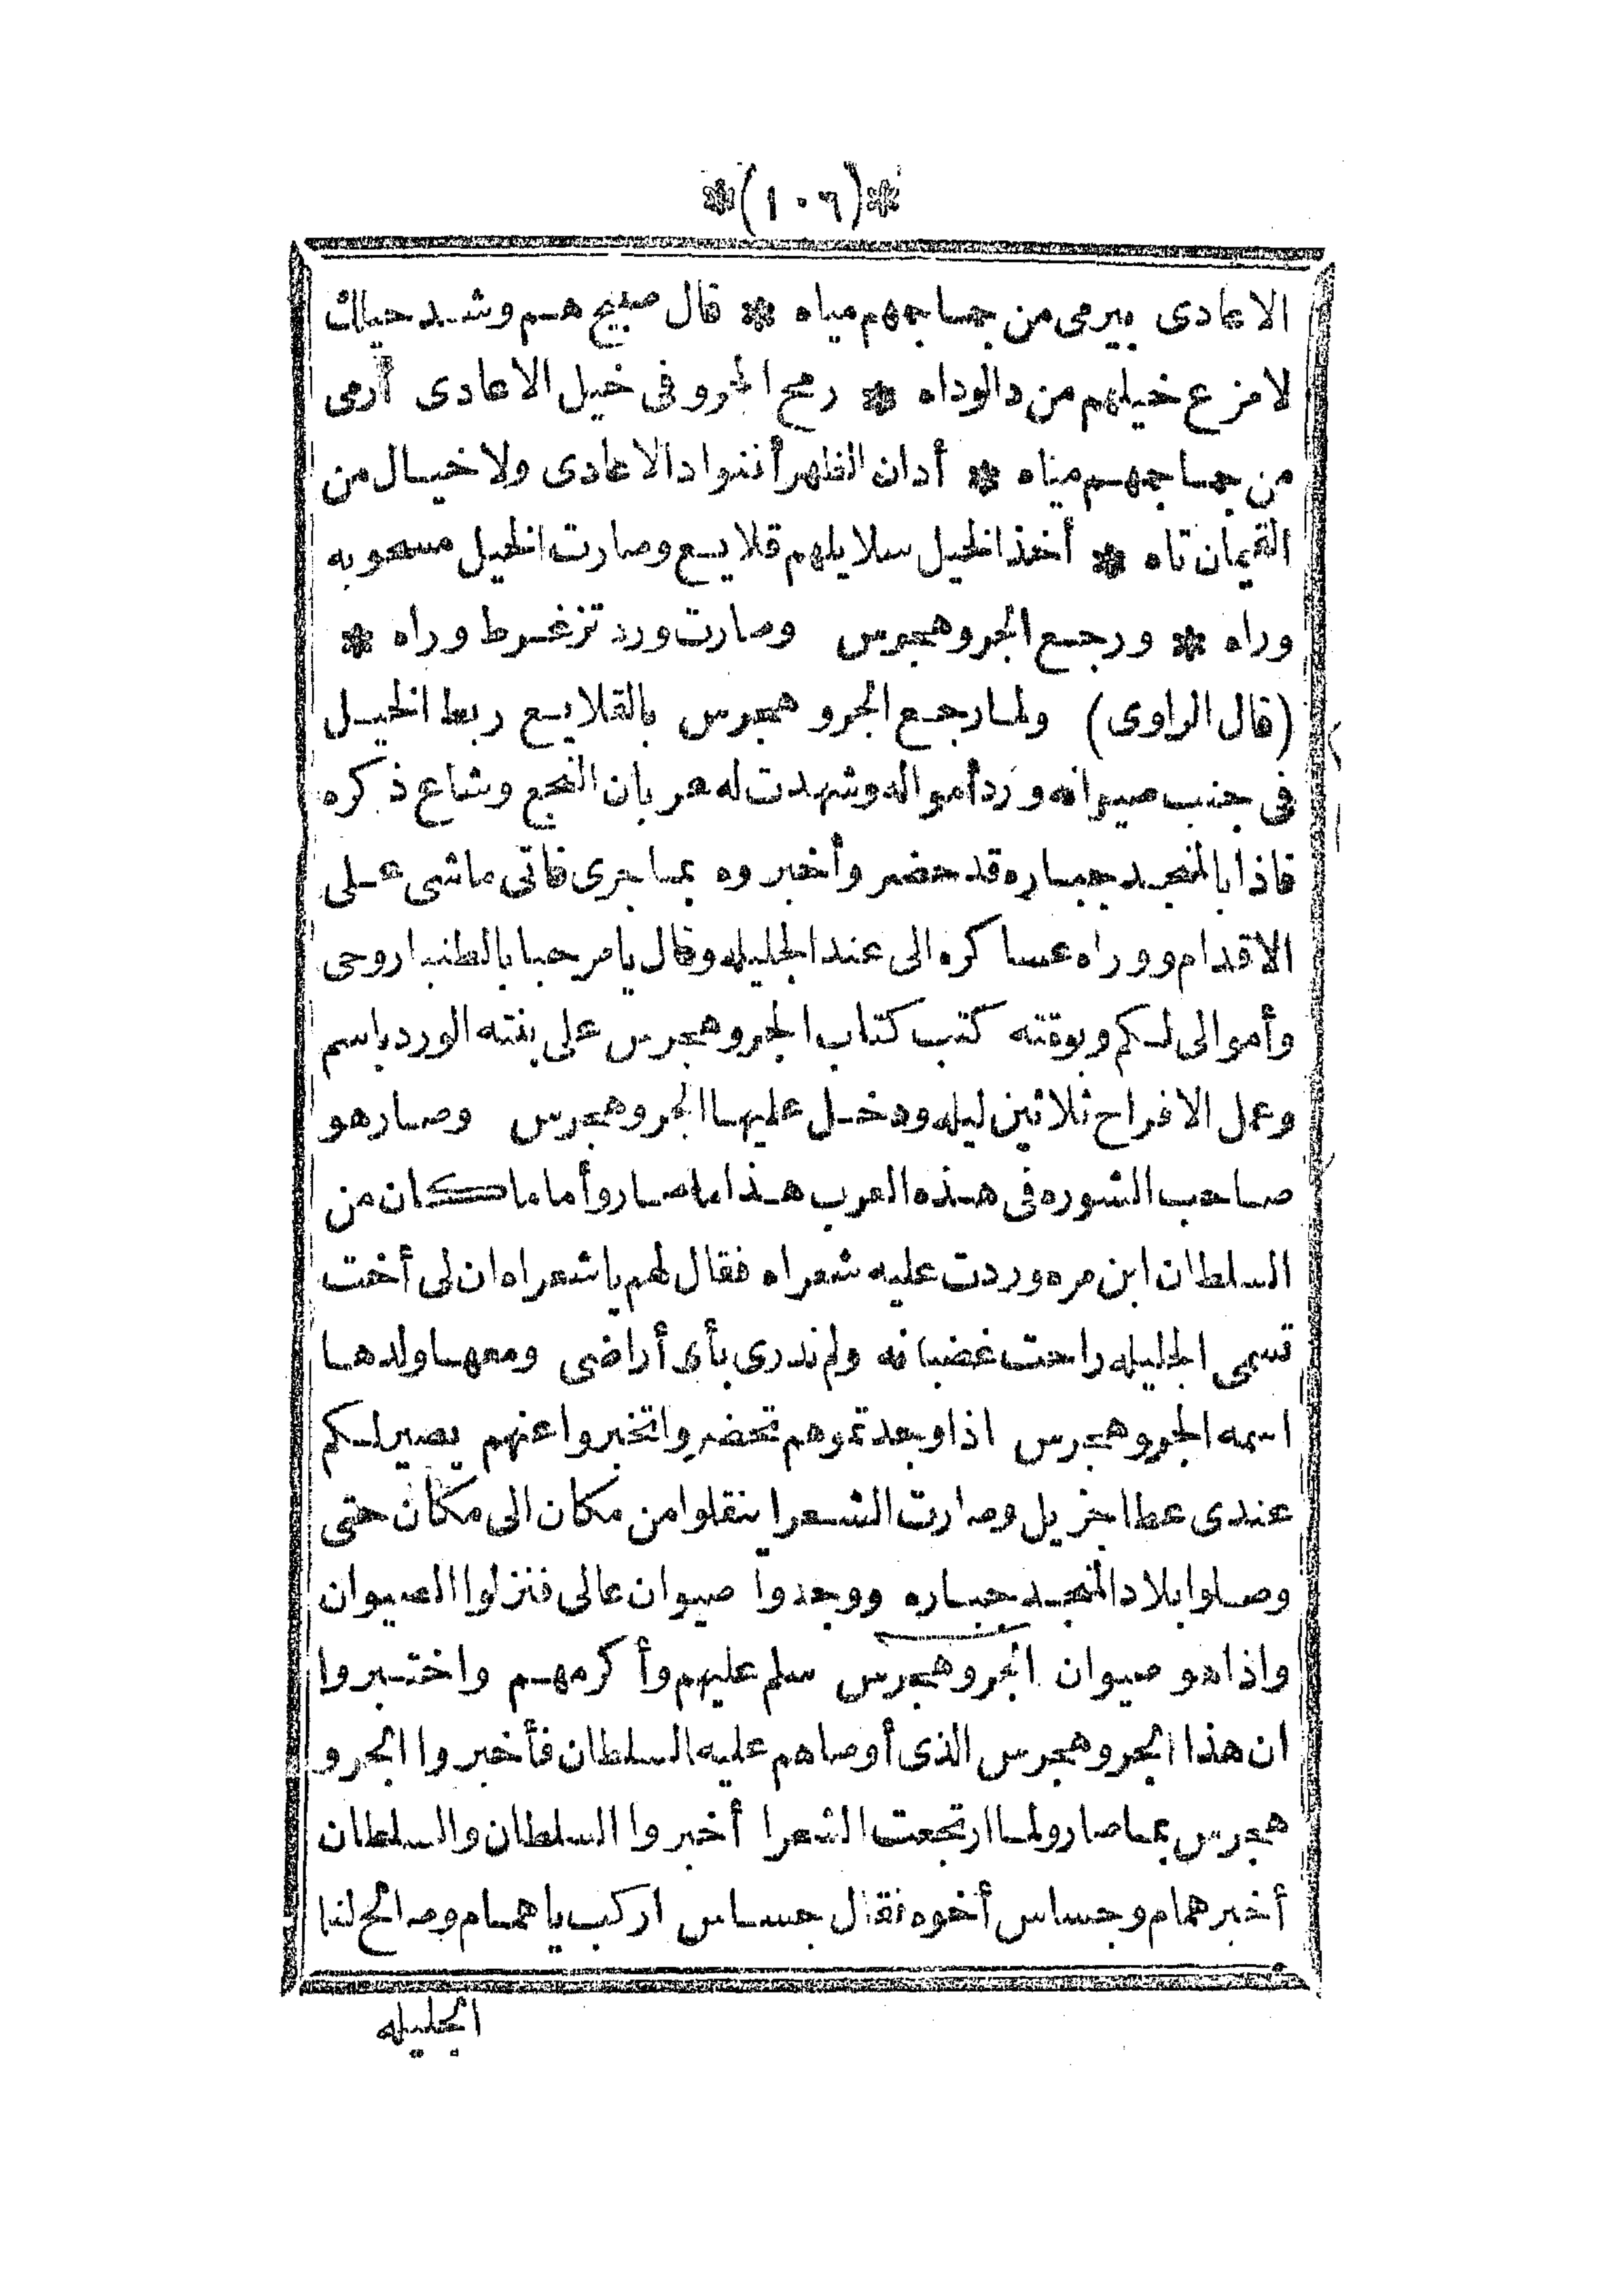 *(١٠٦)*
الاعادى بيرمى من جماجمهم مياه * قال صبيح هم وشد حيلك
لافزع خيلهم من دا لوداه * رمح الجرو فى خيل الاعادى أرمى
من جماجمهم مياه * أدان الظهر أننوا دا الاعادى ولا خيال من
القيمان تاه * أخذ الخيل سلايلهم قلايع وصارت الخيل مسحوبه
وراه * ورجع الجرو هجرس وصارت ورد تزغرط وراه *
(قال الراوى) ولما رجع الجرو هجرس بالقلايع ربط الخيل
فى جنب صيوانه ورد أمواله وشهدت له عربان النجع وشاع ذكره
فاذا بالمنجد جباره قد حضر وأخبروه بما جرى فاتى ماشى على
الاقدام ووراه عساكره الى عند الجليله وقال يا مرحبا بالطنبا روحى
وأموالى لكم وبوقته كتب كتاب الجرو هجرس على بنته الورد باسم
وعمل الافراح ثلاثين ليله ودخل عليها الجرو هجرس وصار هو
صاحب الشوره فى هذه العرب هذا ما صار وأما ما كان من
السلطان ابن مره وردت عليه شعراه فقال لهم يا شعراه ان لى أخت
تسمى الجليله راحت غضبانه ولم ندرى بأى أراضى ومعها ولدها
اسمه الجرو هجرس اذا وجدتموهم تحضروا تخبروا عنهم يصير لكم
عندى عطا جزيل وصارت الشعرا ينقلوا من مكان الى مكان حتى
وصلوا بلاد المنجد جباره ووجدوا صيوان عالى فنزلوا الصيوان
واذا هو صيوان الجرو هجرس سلم عليهم وأكرمهم واختبروا
ان هذا الجرو هجرس الذى أوصاهم عليه السلطان فأخبروا الجرو
هجرس بما صار ولما ارتجعت الشعرا أخبروا السلطان والسلطان
أخبر همام وجساس أخوه فقال جساس اركب يا همام وصالح لنا
الجليله